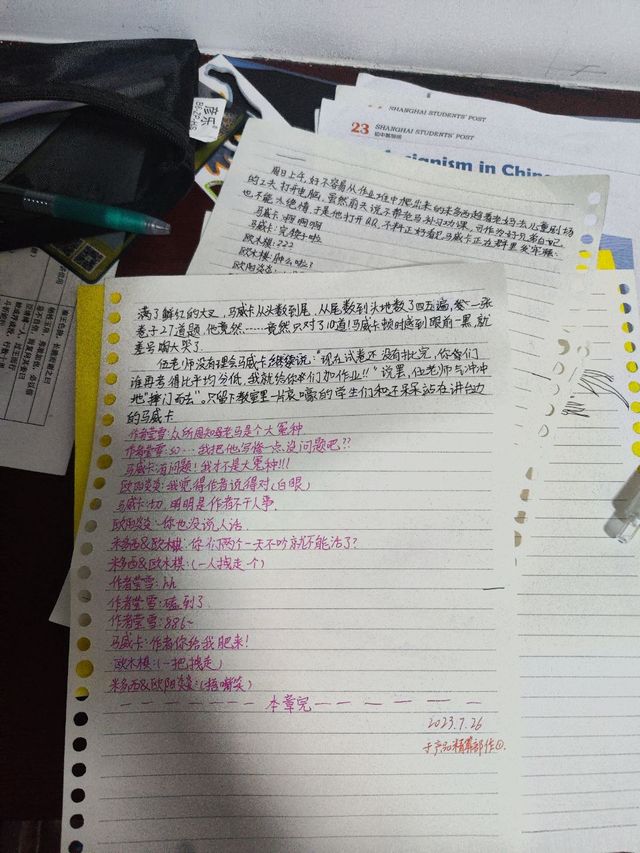 SHANGHAI STUDENTS' POST
23 SHANGHAI STUDENTS' POST
初中教师版
ianism in Chin
施乐
周日上午,好不容易从作业堆中爬出来的米多西趁着老妈去儿童剧场
的工夫打开电脑,虽然前天说不帮老马补习功课,可作为好兄弟自己
也不能太绝情,于是他打开QQ,不料正好看见马威卡正在群里发牢骚:
马威卡:啊啊啊
马威卡:完犊子啦
欧木棋:???
欧木棋:肿么啦?
欧阳炎炎:
满了鲜红的大叉,马威卡从头数到尾,从尾数到头地数了四五遍,整一张
卷子27道题,他竟然……竟然只对了10道!马威卡顿时感到眼前一黑,就
差号啕大哭了。
伍老师没有理会马威卡,继续说:"现在试卷还没有批完,你们
谁再考得比平均分低,我就给你们加作业!!"说罢,伍老师气冲冲
地"摔门而去"。只留下教室里一片哀嚎的学生们和呆呆站在讲台边
的马威卡
作者莹雪:众所周知,老马是个大冤种
作者莹雪:so…我把他写惨一点没问题吧??
马威卡:有问题!我才不是大冤种!!!
欧阳炎炎:我觉得作者说得对(白眼)
马威卡:切,明明是作者不干人事.
欧阳炎炎:你也没说人话
米多西&欧木棋:你们两个一天不吵就不能活了?
米多西&欧木棋:(一人拽走一个)
作者莹雪:hh
作者莹雪:磕到了
作者莹雪:886~
马威卡:作者你给我肥来!
欧木棋:(一把拽走)
米多西&欧阳炎炎:(捂嘴笑)
本章完
2023.7.26